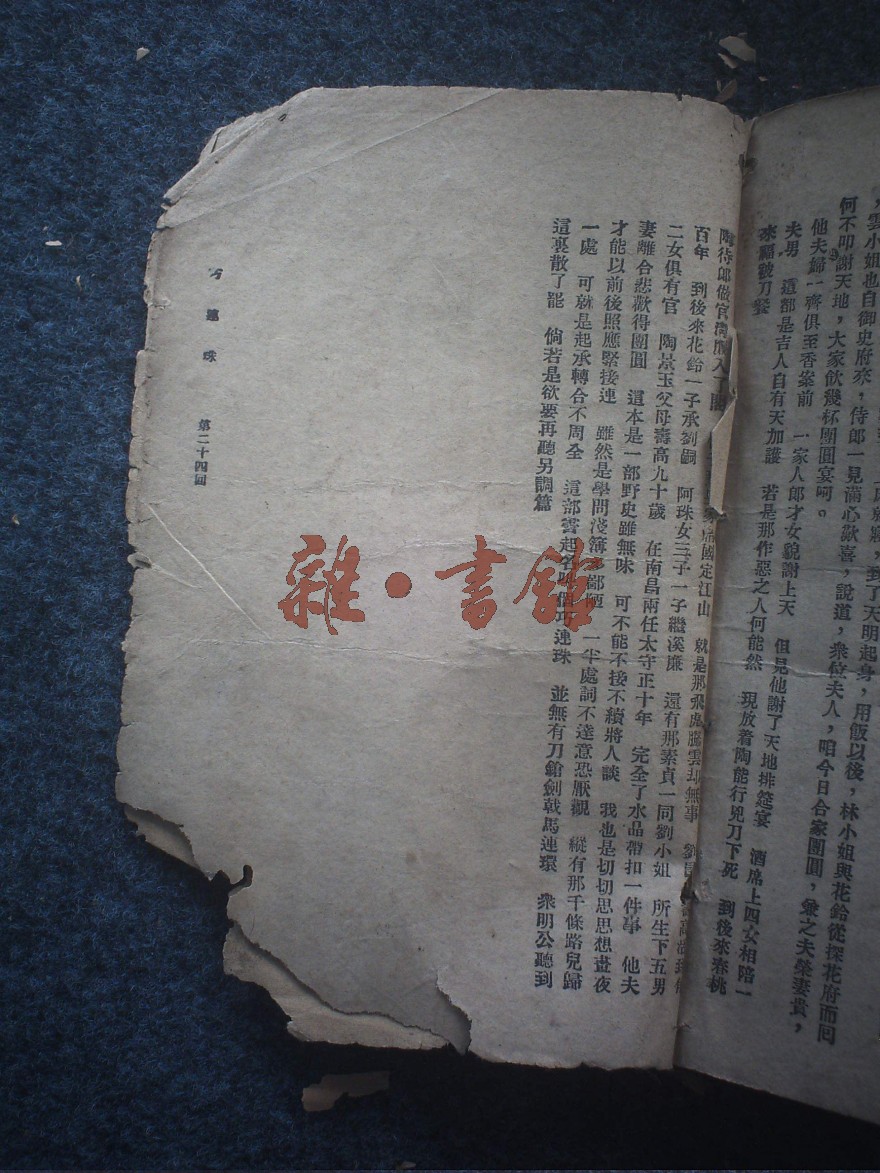 雲小姐也自御史府來，侍郎一見滿心歡喜，說道，衆位夫人，咱今日合家團圓，兼之夫榮妻貴，
何不叩謝天地，大家飲幾杯團圓宴呵。
到了天明起身，用飯以後，林小姐與花鈴從探花府而回
他夫歸一齊俱至香案前　一家人郎才女貌謝上天　但見他謝了天地排筵宴　酒席上四女相陪一
夫男　這都是吉人自有天加護　若是那作惡之人何能然　現放着陶能行兇刀下死　到後來春桃
來福被刀餐
陶侍郎做官　國定江山　就是那飛虎騰雲却無事
百年　到後來花鈴一子承劉嗣　阿珠女三子一子繼溪廉　還有那素貞一同劉小姐　所生下五男
二女俱有官　陶景玉父母壽高九十歲　在南昌兩任太守正十年　完全了水晶帶扣一件事　他夫
妻離合悲歡得團圓　這本是一部野史雖無味　可不能不接不續將人談　我也是切切思思想晝夜
才能以前後照應緊接連　雖然是學問淺簿多鄙陋　一半處詞不達意恐厭觀　縱有那千條路兒歸
一處　可就是起承轉合不周全　這部書起名叫個巧連珠　並無有刀鎗劍戟馬連環　衆明公聽到
這裏散了罷　倘若是欲要再聽另調篇
巧連珠　第二十四回
雜·書館